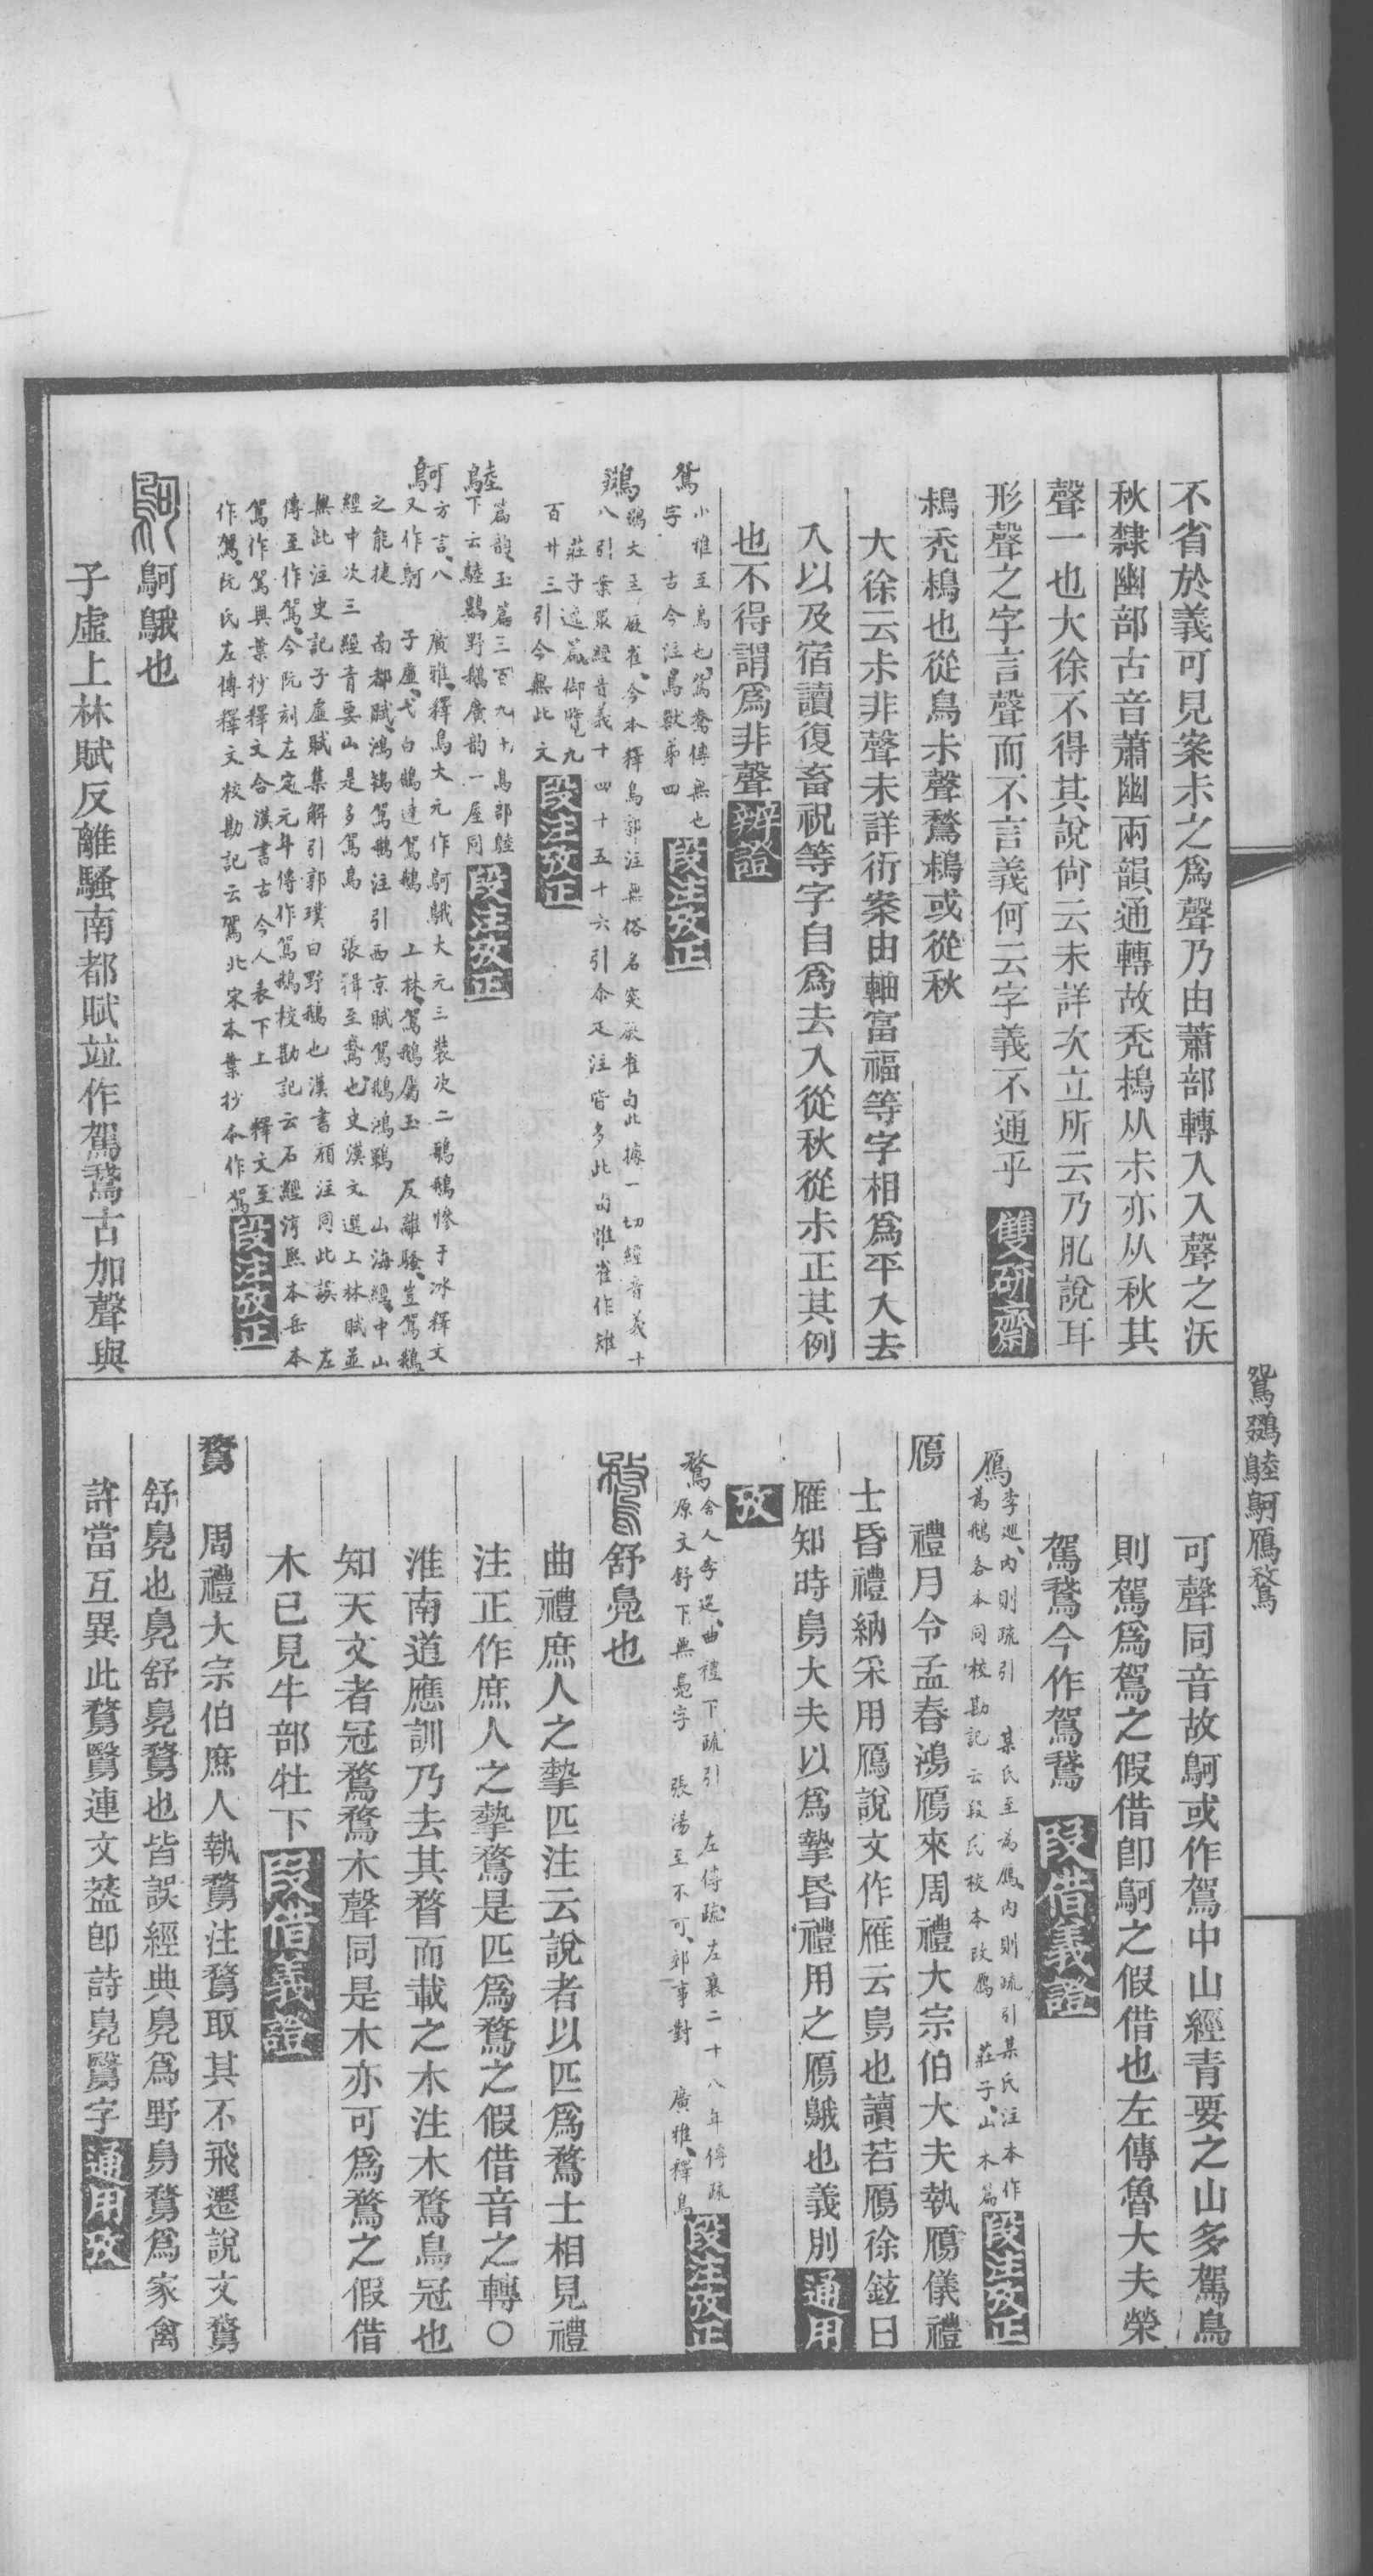 不省於義可見案尗之爲聲乃由蕭部轉入入聲之沃
秋隸幽部古音蕭幽兩韻通轉故禿鵚从尗亦从秋其
聲一也大徐不得其說尙云未詳次立所云乃肊說耳
形聲之字言聲而不言義何云字義不通乎 雙硏齋
禿也從鳥尗聲鶖或從秋
大徐云尗非聲未詳衍案由軸富福等字相爲平入去
入以及宿讀復畜祝等字自爲去入從秋從尗正其例
也不得謂爲非聲 辨證
鴛 小雅至鳥也鴛鴦傳無也
字 古今注鳥獸弟四 段注攷正
鵽大至厥雀今本釋鳥郭注無俗名突厥雀句此據一切經音義十
八引葉眾經音義十四十五十六引尒疋注皆多此句惟雀作雉
莊子 御覽九
百廿三引今無此文 段注攷正
䳓 篇韻玉篇三百九十鳥部䳓
下云䳓鷜野鵝廣韵一屋同 段注攷正
鴚 方言八 廣雅釋鳥大元作鴚䳘大元三裝次二鴚鵝慘于冰釋文
又作鴚 子虛弋白鵠連駕鵝 上林駕鵝屬玉 反離騷豈駕鵝
之能捷 南都賦鴻鴇駕鵝注引西京賦駕鵝鴻鶤 山海經中山
經中次三經青要山是多駕鳥 張揖至鴦也史漢文選上林賦並
無此注史記子虛賦集解引郭璞曰野鵝也漢書顔注同此誤 左
傳至作駕今阮刻左定元年傳作駕鵝校勘記云石經淳熙本岳本
駕作鴐與葉抄釋文合漢書古今人表下上 釋文至
作駕阮氏左傳釋文校勘記云駕北宋本葉抄本作鴐 段注攷正
鴚 鴚䳘也
子虛上林賦反離騷南都賦竝作駕鵞古加聲與
可聲同音故鴚或作駕中山經青要之山多駕鳥
則駕爲鴐之假借卽鴚之假借也左傳魯大夫榮
駕鵞今作鴐鵞 段借義證
鴈 李巡內則疏引 某氏至爲鴈內則疏引某氏注本作
爲鵝各本同校勘記云段氏校本改鴈 莊子山木篇 段注攷正
鴈 禮月令孟春鴻鴈來周禮大宗伯大夫執鴈儀禮
士昏禮納采用鴈說文作雁云鳥也讀若鴈徐鉉曰
雁知時鳥大夫以爲摯昬禮用之鴈䳘也義別 通用
攷
鶩 舍人李巡曲禮下疏引 左傳疏左襄二十八年傳疏
原文舒下無鳧字 張湯至不可郊事對 廣雅釋鳥 段注攷正
鶩 舒鳧也
曲禮庶人之摯匹注云說者以匹爲鶩士相見禮
注正作庶人之摯鶩是匹爲鶩之假借音之轉〇
淮南道應訓乃去其瞀而載之木注木鶩鳥冠也
知天文者冠鶩鶩木聲同是木亦可爲鶩之假借
木已見牛部牡下 段借義證
鶩 周禮大宗伯庶人執鶩注鶩取其不飛遷說文鶩
舒鳧也鳧舒鳧鶩也皆誤經典鳧爲野鳥鶩爲家禽
許當互異此鶩鷖連文葢卽詩鳧鷖字 通用攷
鴛鵽䳓鴚鴈鶩